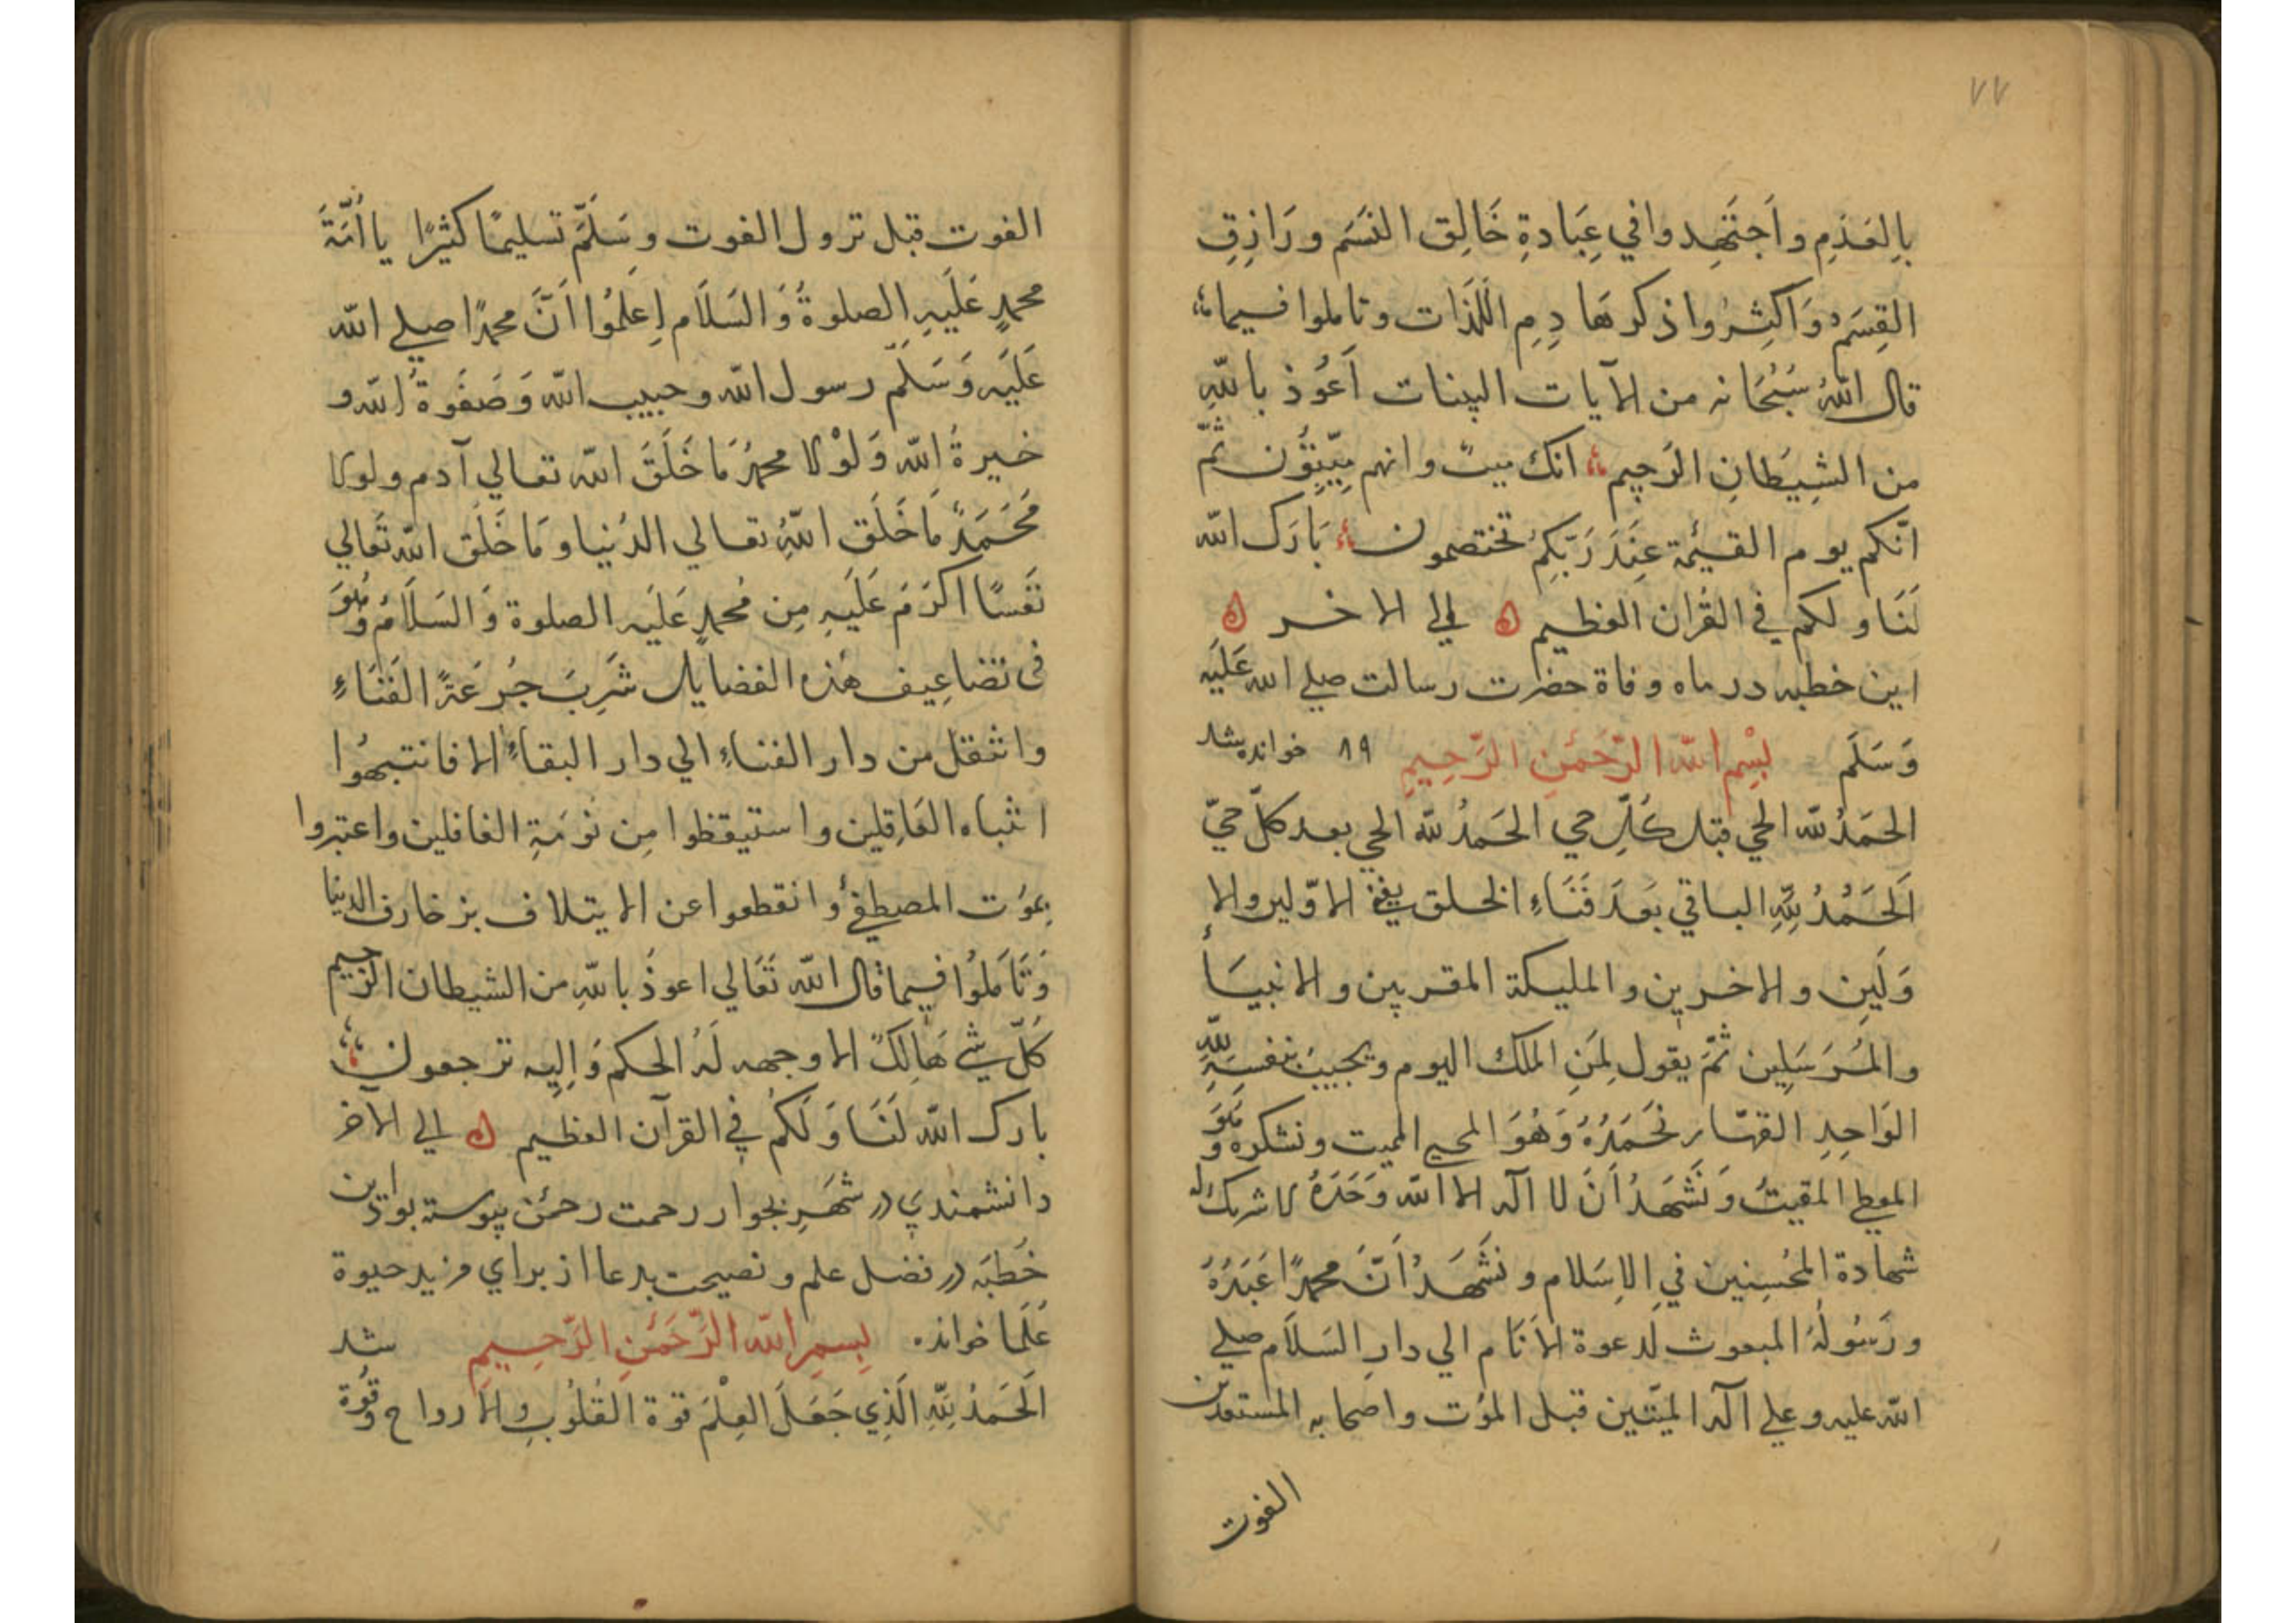 ٧٧
بِالعَدَمِ وَاَجتَهِدوا في عِبَادةِ خَالِق النَسَم ورَازِقِ
القِسَم وَاَكثِروا ذكر هَادِمِ اللَذَات وتاملوا فيما
قال اللهُ سُبْحَانه من الآيات البينات اَعُوذ باللّهِ
من الشيطَانِ الرَجيم انك ميتٌ وانهم مَيّتِوُن ثمّ
انّكم يوم القيٰمة عِنَدَ رَبّكِم تختصمون بَارَك الله
لَنَا ولكم في القُران العظيم الي الاخر
اين خطبه در ماه وفاة حضرت رسالت صلے الله عَلَيَه
وَسَلَم بسْمِ الله الرّحَمٰنِ الرّحِيمِ ١٩ خوانده شد
الحمَدُ للّه الحي قبل كُلّ حي الحَمدُ للّه الحي بعد كلّ حيّ
اَلحَمُدُ لِلّهِ الباقي بَعدَ فَنَاءِ الخلق الاوّلين والا
وَلَينِ والاخرين والمليكة المقربين والانبيَا
والمُرَسَلِين ثمّ يقول لِمَنِ الملك اليوم ويجيبُ بنفسِهِ لِلّهِ
الوَاحِدِ القهّار نَحَمدُهُ وَهُوَ المحي المميت ونشكره وَهُوَ
المعطي المقيتُ وَنَشَهدُ اَنَ لا اله الا الله وَحَدَهُ لا شريك له
شهادة المحُسِنِين فيِ الاِسَلام ونَشَهَدُ اَنّ محمدًا عَبَدُهُ
ورَسُولُه المبعوث لدعوة الاَنَام الي دارِ السَلَام صلے
الله عليه وعلي آله الميّتين قبل الموُت واصحابه المستعدين
الفوت
الفوت قبل نزول الفوت وسَلَمّ تسليمًا كثيرًا يا اُمّةَ
محمدٍ عَلَيهِ الصلوةُ وَالسَلَام اِعلَمُوا اَنَّ محمدًا صلے الله
عَلَيَه وَسَلّم رسول الله وحبيب الله وَصَفوةُ الله و
خيرةُ الله وَلَوْلا محمدٌ مَا خَلَقَ الله تعالي آدم ولولا
مُحَمَدٌ مَا خَلَق اللهُ تعالي الدُنيا ومَا خَلَق الله تَعَالي
نَفسًا اكرَمَ عَلَيهِ مِن مُحمدٍ عَلَيَه الصلوة وَالسَلَامُ وَهُوَ
في تضاعِيف هذه الفضايل شَرِبَ جُرعَةً الفَنَاءِ
وانتقل من دار الفناءِ الي دار البقاءِ الا فانتبهُوا
انتباه العَاقِلين واستيقظوا مِن نوَمَةِ الغافلين واعتبروا
بموُت المصطفي وانقطعوا عن الايتلاف بزخارف الدنيا
وَتَاَملُوا فيما قال الله تَعَالي اعوذُ باللهِ من الشيطان الرجيم
كُلّ شي هَالِكٌ الا وجهه لَهُ الحكم وَاِليِه ترجعون
بارك الله لَنَا وَلَكُم في القرآن العظيم الي الآخر
دانشمندي در شَهَرِ بجوار رحمت رحمٰن پيوسته بود اين
خُطبَه در فضل علم و نصيحت بدعا از براي مزيد حيوة
عُلَما خوانده بِسمِ الله الرَّحَمٰنِ الرّحِيمِ شد
اَلحَمدُ لِلّهِ الّذِي جَعَلَ العِلْمَ قوة القُلُوبِ والاَرواح وقُوة